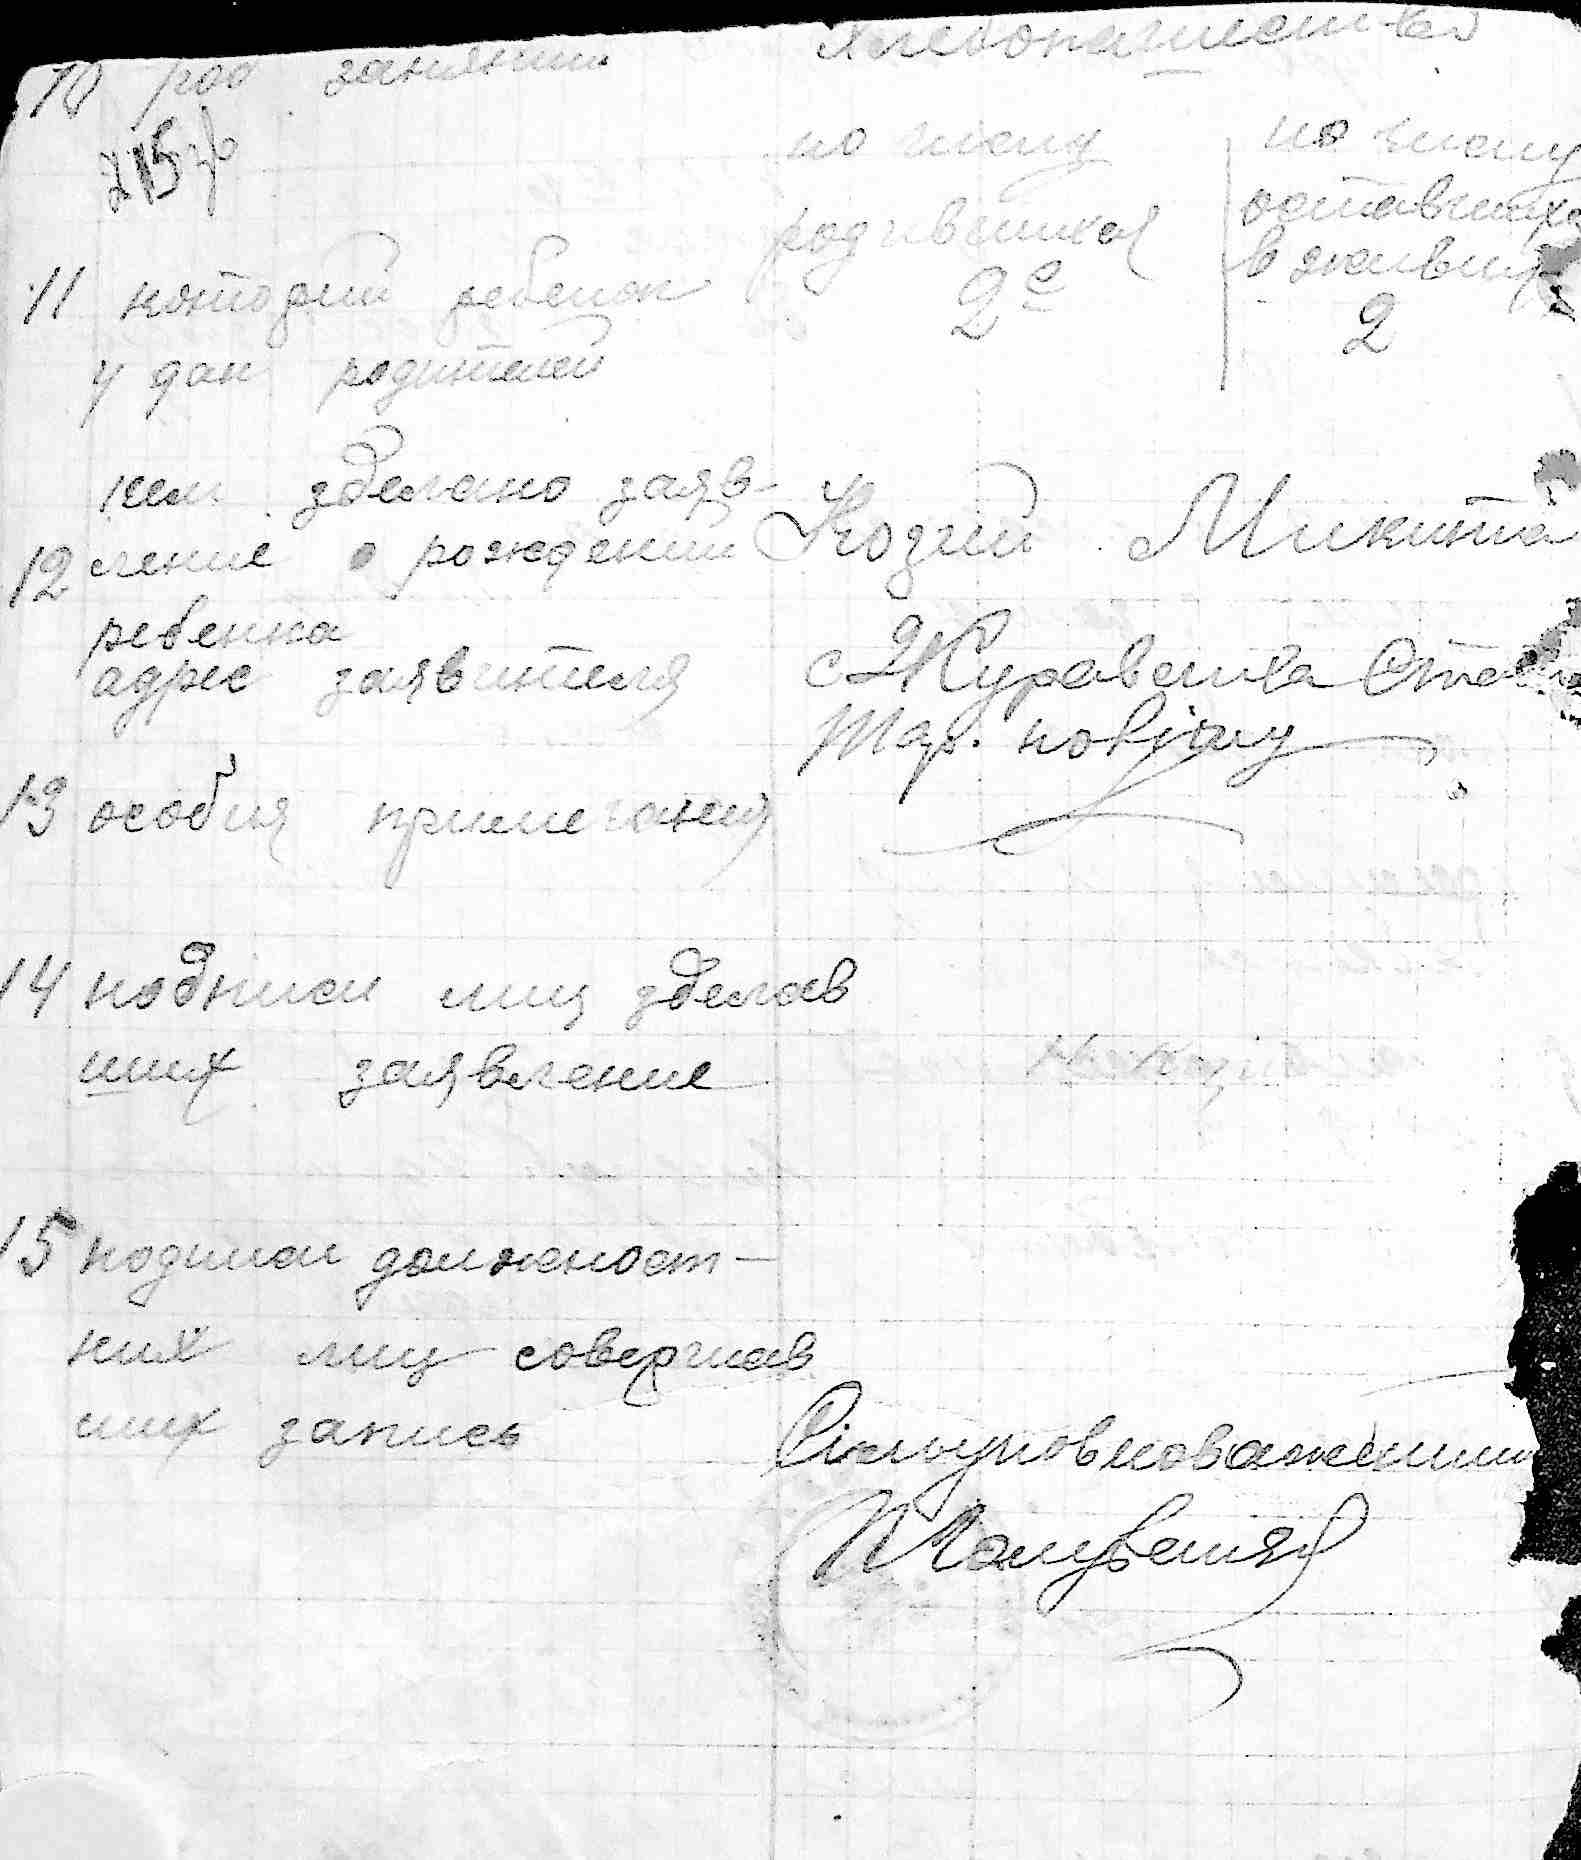 10 род занятии Хлебопашество
по числу
родившихся
2е
по числу
оставшихся
в живых
2
11 которий ребенок
у дан родителей
кем зделано заяв-
12 ление о рождении
ребенка
Козий Микита
адрес заявителя
с Журавлиха Става
Тар. повіту
13 особия примечания
14 подписи лиц зделав
ших заявление
15 подписи должност-
них лиц совершав
ших запись
Сільуповноважений